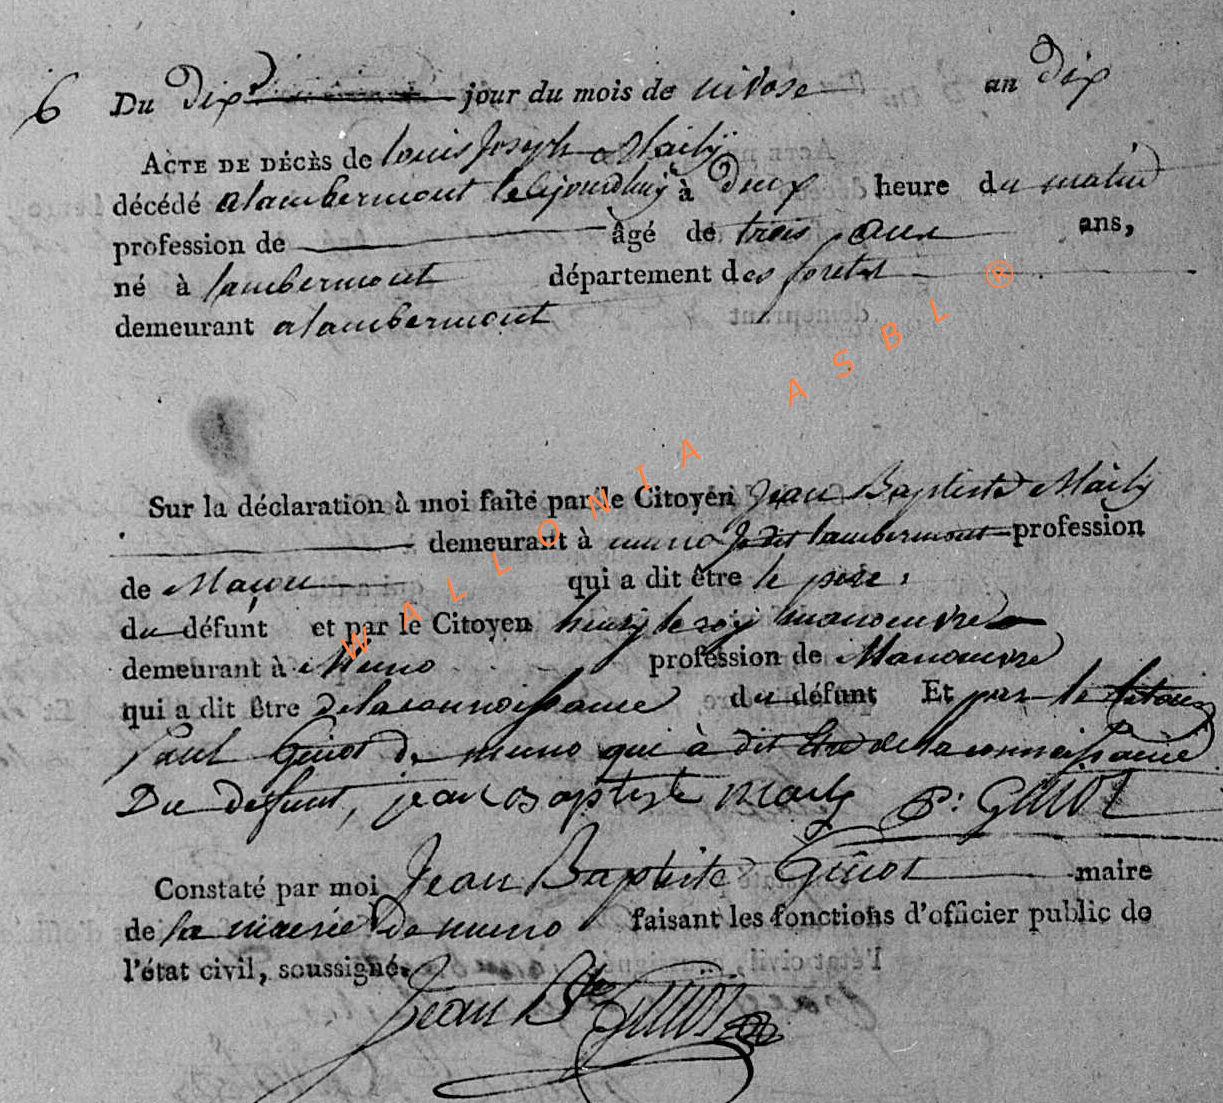 6 Du dix jour du mois de nivose an dix
ACTE DE DÉCÈS de louis joseph Maily
décédé a lambermont le cejourdhuy à deux heure du matin
profession de âgé de trois ans ans,
né à lambermont département des forets
demeurant a lambermont
Sur la déclaration à moi faite par le Citoyen Jean Baptiste Maily
demeurant à muno lambermont profession
de Maçon qui a dit être le pere
du défunt et par le Citoyen henry le roy manoeuvre
demeurant à Muno profession de Manoeuvre
qui a dit être de la connoissance du défunt Et par le
Paul Guiot de muno qui à dit être de la connoissance
Du défunt, jean baptiste maily P: GUIOT
Constaté par moi Jean Baptiste Guiot maire
de la mairie de muno faisant les fonctions d'officier public de
l'état civil, soussigné.
Jean Bte GUIOT
WALLONIA ASBL ®